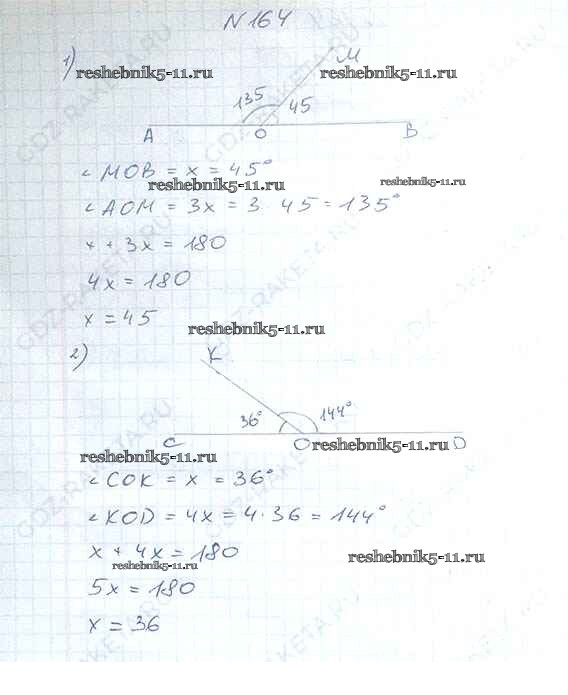 N 164
1)
M
reshebnik5-11.ru
135 45
A O B
∠MOB = x = 45°
reshebnik5-11.ru reshebnik5-11.ru
∠AOM = 3x = 3 · 45 = 135°
x + 3x = 180
4x = 180
x = 45
reshebnik5-11.ru
2)
K
36° 144°
C O D
reshebnik5-11.ru
reshebnik5-11.ru
∠COK = x = 36°
∠KOD = 4x = 4 · 36 = 144°
x + 4x = 180
reshebnik5-11.ru
reshebnik5-11.ru
5x = 180
x = 36
GDZ-RAKETA.RU